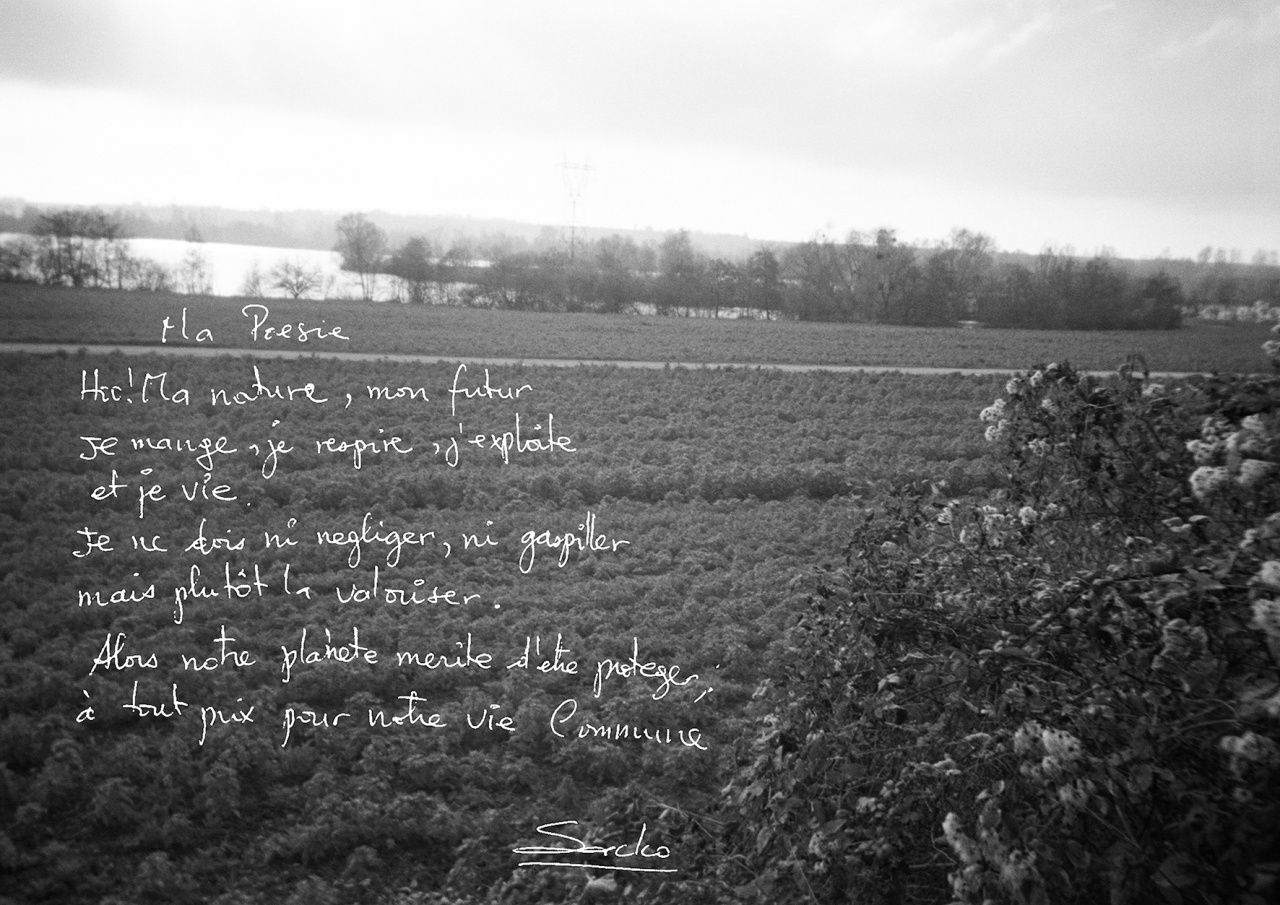 Ma Poesie
Hic! Ma nature, mon futur
Je mange, je respire, j'exploite
et je vie.
Je ne dois ni negliger, ni gaspiller
mais plutôt la valoriser.
Alors notre planète merite d'etre proteger,
à tout prix pour notre vie Commune